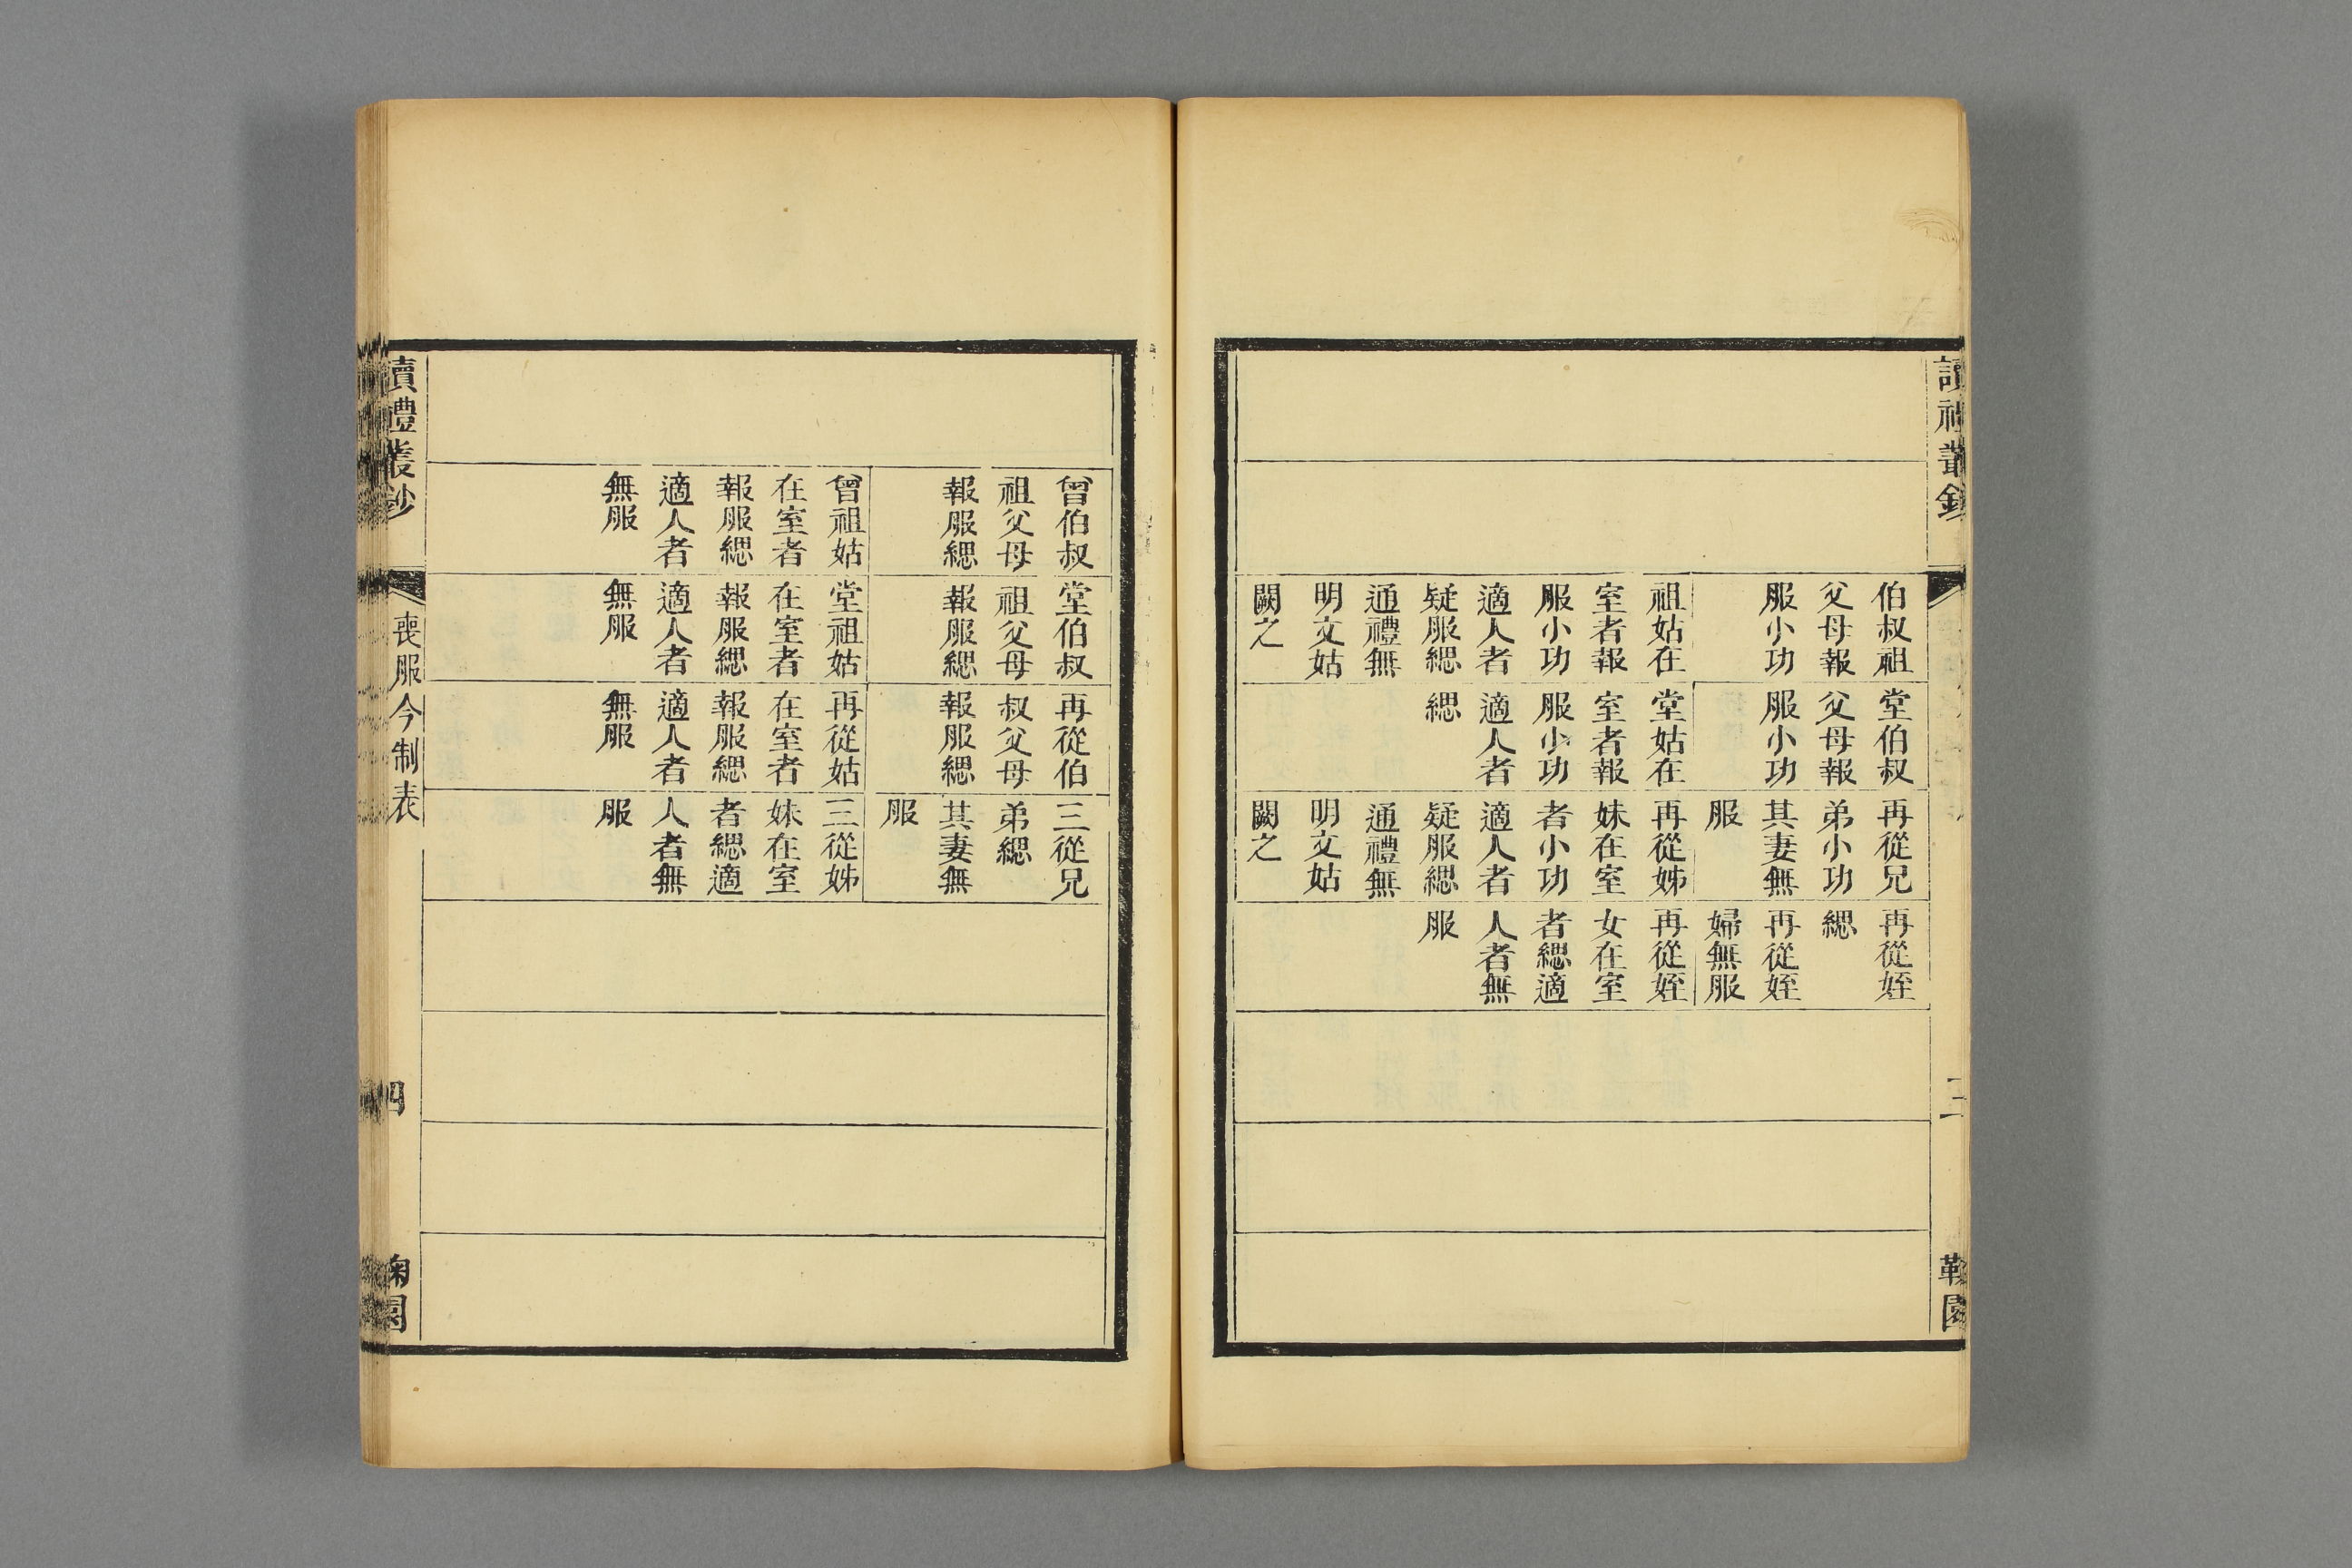 讀禮叢鈔
三
鞠園
伯叔祖
父母報
服小功
祖姑在
室者報
服小功
適人者
疑服緦
通禮無
明文姑
闕之
堂伯叔
父母報
服小功
堂姑在
室者報
服小功
適人者
緦
再從兄
弟小功
其妻無
服
再從姊
妹在室
者小功
適人者
疑服緦
通禮無
明文姑
闕之
再從姪
緦
再從姪
婦無服
再從姪
女在室
者緦適
人者無
服
曾伯叔
祖父母
報服緦
曾祖姑
在室者
報服緦
適人者
無服
堂伯叔
祖父母
報服緦
堂祖姑
在室者
報服緦
適人者
無服
再從伯
叔父母
報服緦
再從姑
在室者
報服緦
適人者
無服
三從兄
弟緦
其妻無
服
三從姊
妹在室
者緦適
人者無
服
讀禮叢鈔
喪服今制表
四
鞠園